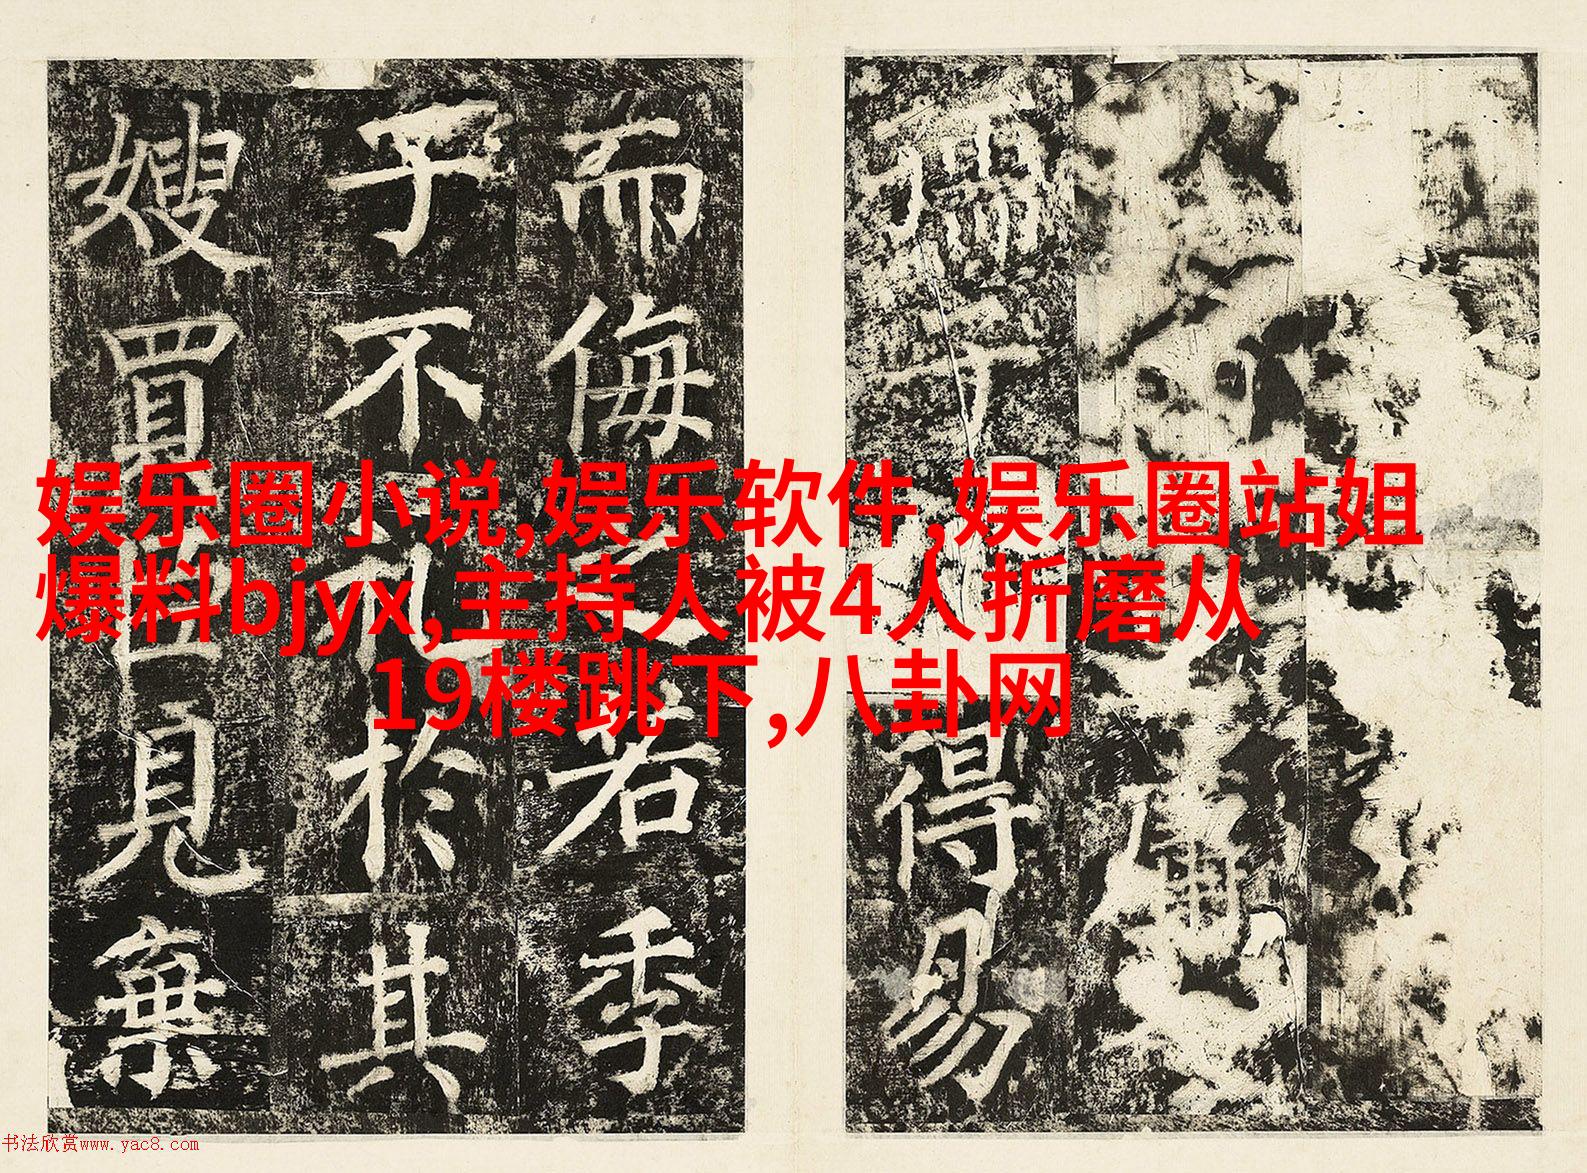 娱乐圈小说,娱乐软件,娱乐圈站姐
爆料bjyx,主持人被4人折磨从
19楼跳下,八卦网
孺子得易
而侮之若季
子不礼於其
嫂買臣見棄
书法欣赏www.yac8.com